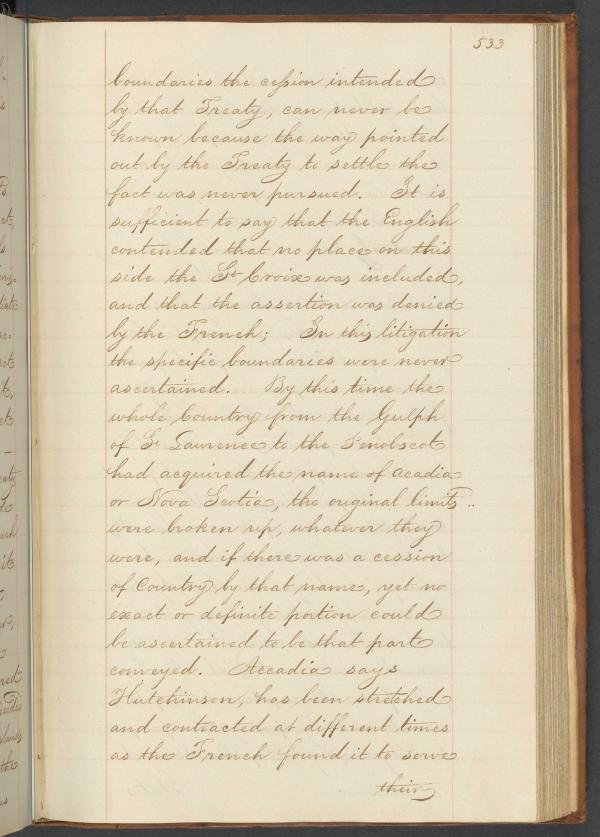 533
boundaries the cession intended
by that Treaty, can never be
known because the way pointed
out by the Treaty to settle the
fact was never pursued. It is
sufficient to say that the English
contended that no place on this
side the St Croix was included,
and that the assertion was denied
by the French; In this litigation
the specific boundaries were never
ascertained. By this time the
whole Country from the Gulph
of St Lawrence to the Penobscot
had acquired the name of acadia
or Nova Scotia, the original limits ..
were broken up, whatever they
were, and if there was a cession
of Country by that name, yet no
exact or definite portion could
be ascertained to be that part
conveyed. Accadia says
Hutchinson, has been stretched
and contracted at different times
as the French found it to serve
their